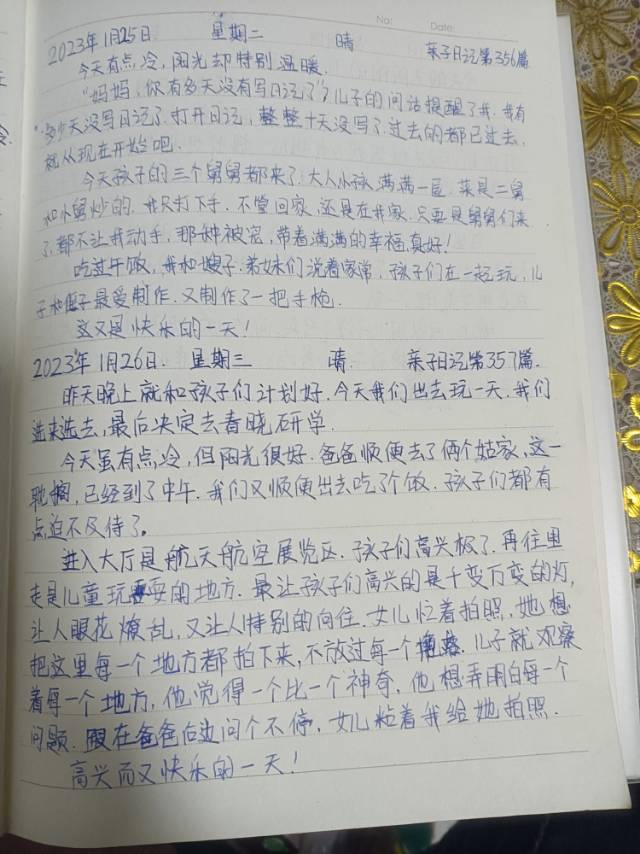 No: Date:
2023年1月25日 星期二 晴 亲子日记第356篇
今天有点冷,阳光却特别温暖.
"妈妈,你有多天没有写日记了",儿子的问话提醒了我.我有
多少天没写日记了.打开日记,整整十天没写了.过去的都已过去,
就从现在开始吧.
今天孩子的三个舅舅都来了.大人小孩满满一屋.菜是二舅
和小舅炒的.我只打下手.不管回家,还是在我家.只要是舅舅们来
了,都不让我动手,那种被宠,带着满满的幸福,真好!
吃过午饭,我和嫂子.弟妹们说着家常,孩子们在一起玩,儿
子和侄子最爱制作.又制作了一把手枪.
这又是快乐的一天!
2023年1月26日. 星期三 晴. 亲子日记第357篇.
昨天晚上就和孩子们计划好.今天我们出去玩一天.我们
选来选去,最后决定去春晓研学.
今天虽有点冷,但阳光很好.爸爸顺便去了俩个姑家,这一
耽搁,已经到了中午.我们又顺便出去吃了个饭.孩子们都有
点迫不及待了。
进入大厅是航天航空展览区.孩子们高兴极了.再往里
走是儿童玩耍的地方.最让孩子们高兴的是千变万变的灯,
让人眼花燎乱,又让人特别的向往.女儿忙着拍照,她想
把这里每一个地方都拍下来,不放过每一个角落.儿子就观察
着每一个地方,他觉得一个比一个神奇,他想弄明白每一个
问题.跟在爸爸后边问个不停.女儿粘着我给她拍照.
高兴而又快乐的一天!